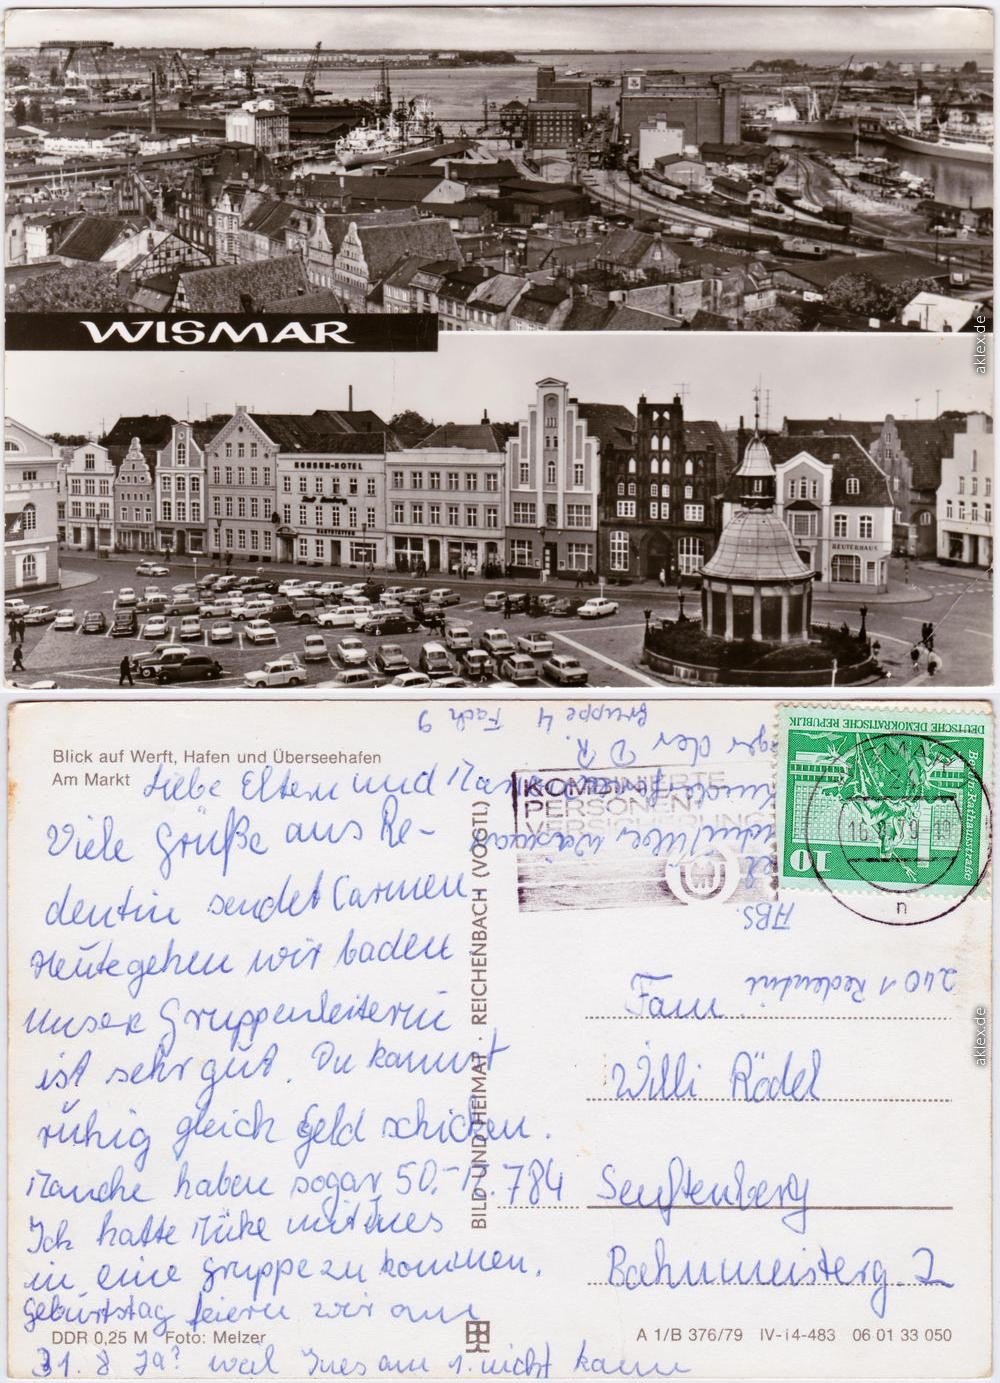 WISMAR
KONSUM-HOTEL
GASTSTÄTTEN
REUTERHAUS
aklex.de
Blick auf Werft, Hafen und Überseehafen
Am Markt
Liebe Eltern und
Viele Grüße aus Re-
dentin sendet Carmen
Heute gehen wir baden.
Unser Gruppenleiterin
ist sehr gut. Du kannst
ruhig gleich Geld schicken.
Manche haben sogar 50,- M.
Ich hatte Mühe mit Ines
in eine Gruppe zu kommen.
Geburtstag feiern wir am
31. 8 Ja? weil Ines am 1. nicht kann
DDR 0,25 M Foto: Melzer
BILD UND HEIMAT · REICHENBACH (VOGTL)
Gruppe 4 Fach 9
der DR.
über Wismar
ABS.
2401 Redentin
KOMBINIERTE
PERSONEN-
VERSICHERUNG
DEUTSCHE DEMOKRATISCHE REPUBLIK
Berlin · Rathausstraße
10
WISMAR
24
16.8.79-19
n
Fam.
Willi Rödel
784 Senftenberg
Bahnmeisterg. 2
A 1/B 376/79 IV-i4-483 06 01 33 050
aklex.de